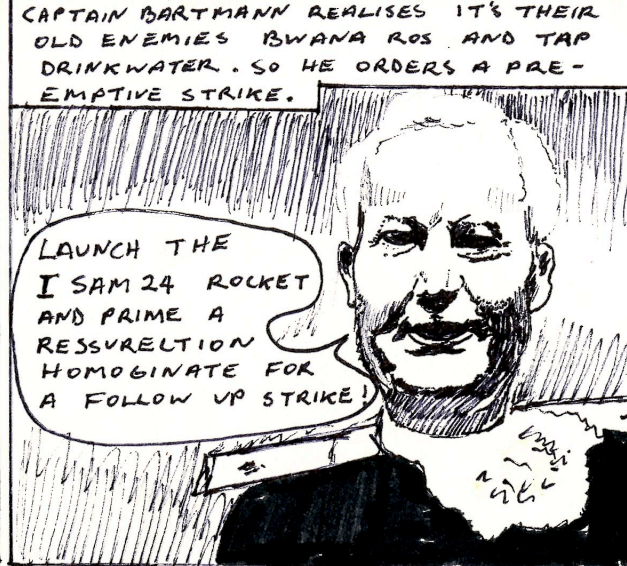 CAPTAIN BARTMANN REALISES IT'S THEIR
OLD ENEMIES BWANA ROS AND TAP
DRINKWATER. SO HE ORDERS A PRE-
EMPTIVE STRIKE.
LAUNCH THE
I SAM 24 ROCKET
AND PRIME A
RESSURECTION
HOMOGINATE FOR
A FOLLOW UP STRIKE!